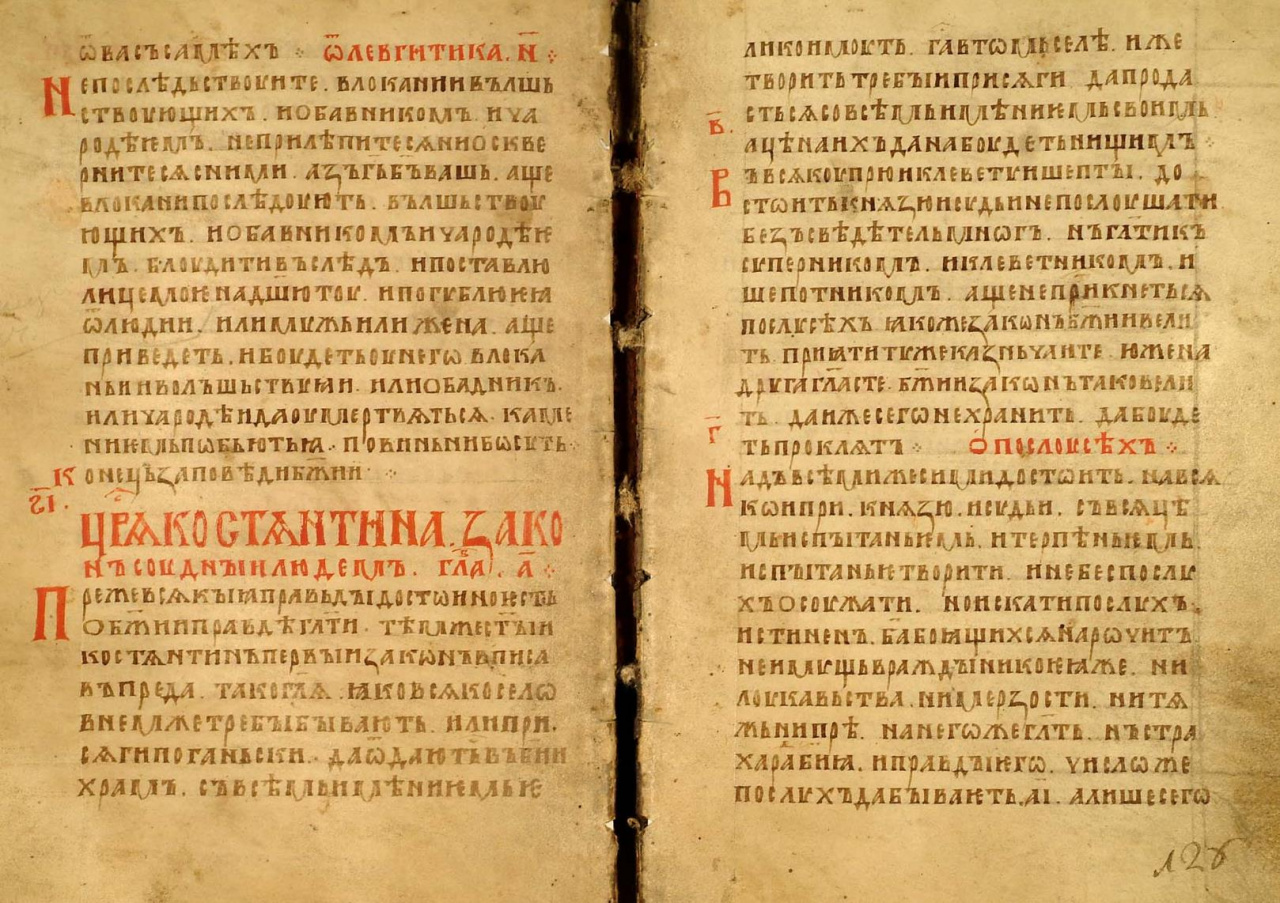 ѿ васъ самѣхъ ⁘ ѿ левгитика. н҃
Не послѣдьствоуите. влоканни въ влшь
ствоующихъ. и обавникомъ. и ча
родѣемъ. не прилѣпитеся ни оскве
рнитеся с ними. азъ гь҃ бъ҃ вашь. аще
влокани послѣдоують. вълшьствоу
ющихъ. и обавникомъ и чародѣе
мъ. блоудити въ слѣдъ. и поставлю
лице мое на дш҃ю тоу. и погублю ꙗ
ѿ людии. или мужь или жена. аще
приведеть. и боудеть оу него влока
ньи и волъшьствиꙗи. или обадникъ.
или чародѣи да оумертвяться. каме
ниемь побьють ꙗ. повиньни бо суть
Конець заповѣди бж҃ии ⁘
г҃і.
Цр҃я костянтина. зако
нъ соудныи людемъ. глв҃а. а҃ ⁘
Преже всякыꙗ правьды достоино есть
о бж҃ии правдѣ гл҃ти. тѣмже ст҃ыи
костянтинъ первыи законъ вписа
въ преда. тако гл҃я. ꙗко всяко село
в немже требы бывають. или при.
сяги поганьски. да ѿдають въ бж҃ии
храмъ. съ всѣмь имѣниемь ѥ
лико имоуть. га в томь селѣ. иже
творить требы и присяги. да прода
сться со всѣмь имѣниемь своимь
в҃.
а цѣна ихъ да на боудеть нищимъ ⁘
Въ всякоу прю и клеветоу и шепты. до
стоить князю и судьи не послоушати
безъ свѣдѣтель мног. нъ гл҃ти къ
суперникомъ. и клеветникомъ. и
шепотникомъ. аще не прикнеться
послусѣхъ ꙗкоже законъ бж҃ии вели
ть. приꙗти ту же казнь чаите. юже на
друга гл҃асте. бж҃ии законъ тако вели
ть. да иже сего не хранить. да боуде
г҃
ть проклятъ ⁘ О послоусѣхъ ⁘
Надъ всѣми же сими достоить. на вся
кои при. князю. и судьи. съ всяцѣ
мь испытаньемь. и терпѣньемь.
испытанье творити. и не бес послу
хъ осоужати. но искати послухъ.
истиненъ. ба҃ боꙗщихся нарочитъ
не имущь вражды никоеꙗже. ни
лоукавьства. ни мерзости. ни тя
жь ни прѣ. на негоже гл҃ть. нъ стра
ха ради бж҃иꙗ. и правды его. число же
послухъ да бываеть. а҃і. а лише сего
126